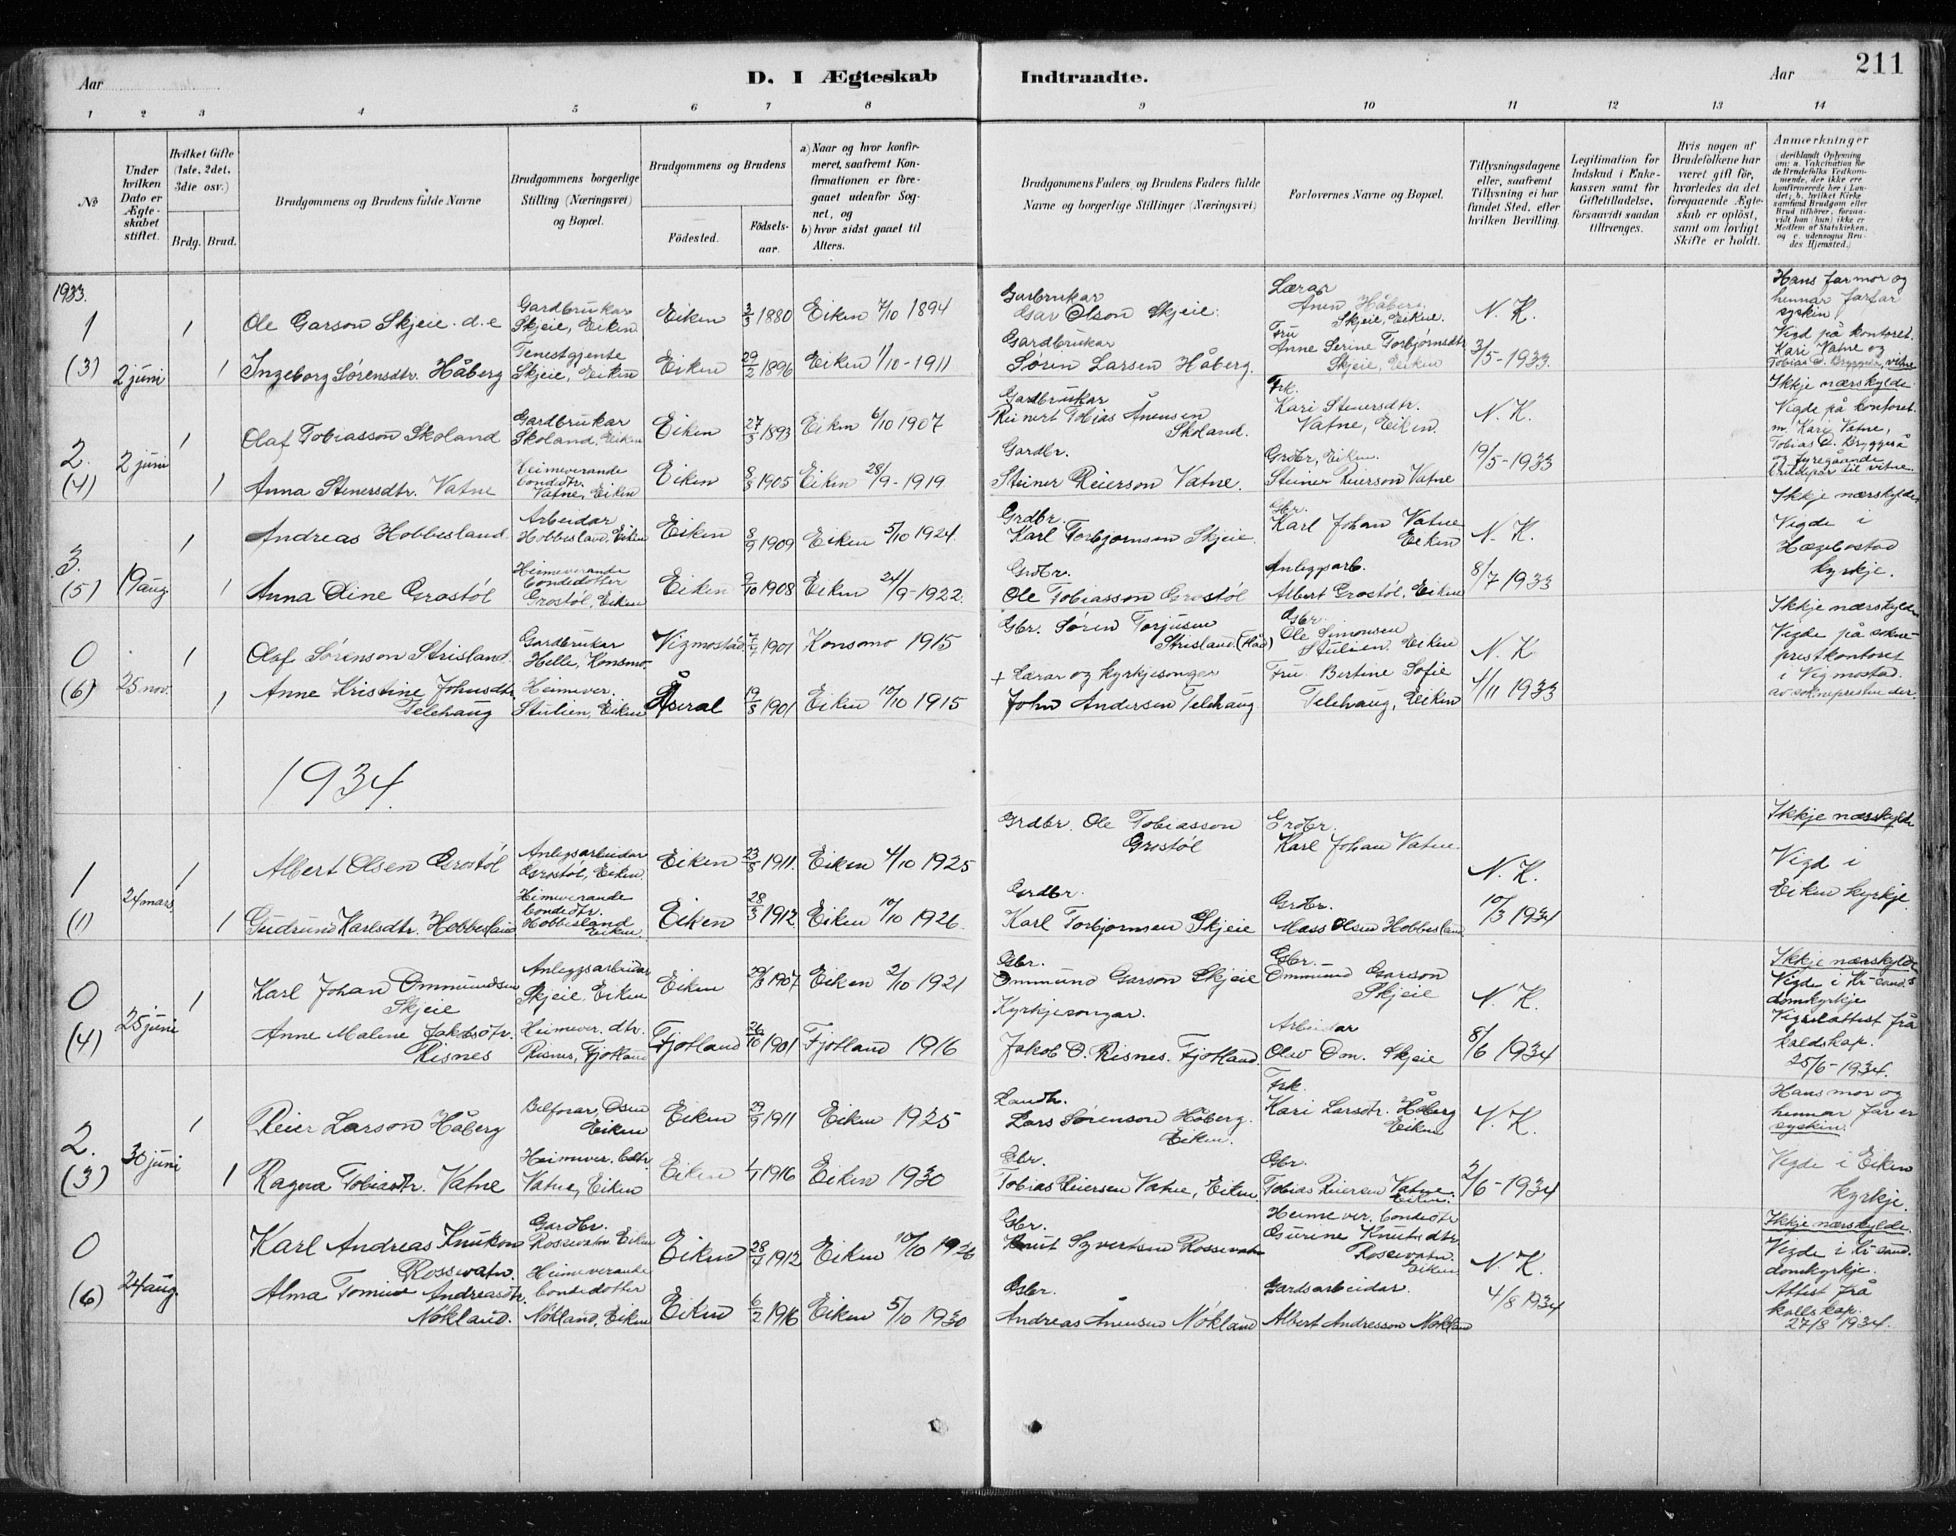 Aar
D. I Ægteskab Indtraadte.
Aar
211
1 2 3 4 5 6 7 8 9 10 11 12 13 14
No
Under hvilken Dato er Ægteskabet stiftet.
Hvilket Gifte (1ste, 2det, 3die osv.)
Brdg. Brud.
Brudgommens og Brudens fulde Navne
Brudgommens borgerlige Stilling (Næringsvei) og Bopæl.
Brudgommens og Brudens
Födested. Födsels-aar.
a) Naar og hvor konfirmeret, saafremt Konfirmationen er foregaaet udenfor Sognet, og
b) hvor sidst gaaet til Alters.
Brudgommens Faders og Brudens Faders fulde Navne og borgerlige Stillinger (Næringsvei)
Forlovernes Navne og Bopæl.
Tillysningsdagene eller, saafremt Tillysning ei har fundet Sted, efter hvilken Bevilling.
Legitimation for Indskud i Enkekassen samt for Giftetilladelse, forsaavidt saadan tiltrænges.
Hvis nogen af Brudefolkene har været gift för, hvorledes da det foregaaende Ægteskab er oplöst, samt om lovligt Skifte er holdt.
Anmærkninger
(deriblandt Oplysning om: a. Vakcination for de Brudefolks Vedkommende, der ikke ere konfirmerede her i Landet; b. hvilket Kirkesamfund Brudgom eller Brud tilhörer, forsaavidt han (hun) ikke er Medlem af Statskirken, og c. udensogns Brudes Hjemsted.)
1933.
1 (3) 2 juni
1 Ole Garson Skjeie d.e. Gardbrukar Skjeie, Eiken Eiken 3/3 1880 Eiken 7/10 1894 Gardbrukar Gar Olson Skjeie. Lærar Anen Håberg. Skjeie, Eiken. N. K.
1 Ingeborg Sørensdtr. Håberg Tenestgjente Skjeie, Eiken Eiken 29/2 1896 Eiken 1/10 - 1911 Gardbrukar Søren Larsen Håberg. Fru Anne Serine Torbjørnsdtr Skjeie, Eiken 3/5 - 1933.
Hans farmor og hennar farfar syskin Vigd på kontoret. Kari Vatne og Tobias O. Bryggeså, vitne
2. (4) 2 juni
1 Olaf Tobiasson Skoland Gardbrukar Skoland, Eiken Eiken 27/3 1893 Eiken 6/10 1907 Gardbrukar Reinert Tobias Ånensen Skoland. Frk. Kari Stenersdtr. Vatne, Eiken. N. K.
1 Anna Stenersdtr. Vatne Heimeverande bondedtr. Vatne, Eiken Eiken 8/8 1905 Eiken 28/9 - 1919 Gardbr. Steiner Reierson Vatne. Grdbr., Eiken. Steiner Reierson Vatne 19/5 - 1933
Ikkje nærskylde. Vigde på kontoret. m. Kari Vatne, Tobias O. Bryggeså og fyregåande brudepar til vitne.
3. (5) 19 aug.
1 Andreas Hobbesland. Arbeidar Hobbesland, Eiken Eiken 8/9 1909 Eiken 5/10 1924. Grdbr. Karl Torbjørnsen Skjeie. Gbr. Karl Johan Vatne Eiken N. K.
1 Anna Oline Grostøl Heimeverande bondedotter Grostøl, Eiken Eiken 9/10 1908 Eiken 24/9 - 1922. Grdbr. Ole Tobiasson Grostøl Anleggsarb. Albert Grostøl, Eiken 8/7 1933
Ikkje nærskylde Vigde i Hægebostad kyrkje.
0 (6) 25 nov.
1 Olaf Sørenson Strisland. Gardbrukar Helle, Konsmo Vigmostad 7/7 1901 Konsmo 1915 Gbr. Søren Torjusen Strisland. Gbr. Ole Simonsen Stulien. Eiken N. K.
1 Anne Kristine Johnsdtr Telehaug Heimever. Stulien, Eiken Åseral 19/8 1901 Eiken 10/10 1915 + Lærar og kyrkjesongar John Andersen Telehaug Fru Bertine Sofie Telehaug, Eiken 4/11 1933
Ikkje nærskylde Vigde på sokneprestkontoret i Vigmostad. av soknepresten der.
1934.
1 (1) 24 mars
1 Albert Olsen Grostøl Anlegsarbeidar Grostøl, Eiken. Eiken 23/8 1911. Eiken 4/10 1925 Grdbr. Ole Tobiasson Grostøl Grdbr. Karl Johan Vatne. N. K.
1 Gudrund Karlsdtr. Hobbesland Heimeverande bondedtr. Hobbesland Eiken. Eiken 28/3 1912 Eiken 10/10 1926. Grdbr. Karl Torbjørnsen Skjeie Grdbr. Mass Olsen Hobbesland 10/3 1934
Ikkje nærskylde Vigd i Eiken kyrkje
0 (4) 25 juni
1 Karl Johan Ommundsen Skjeie Anleggsarbeidar Skjeie, Eiken Eiken 29/3 1907 Eiken 2/10 1921 Gbr. Ommund Garson Skjeie Gbr. Ommund Garsson Skjeie N. K.
Anne Malene Jakobsdtr. Risnes Heimever. dtr. Risnes, Fjotland Fjotland 26/10 1901 Fjotland 1916 Kyrkjesongar. Jakob O. Risnes. Fjotland. Arbeidar Olav Om. Skjeie 8/6 1934
Ikkje nærskylde Vigde i Kr-sands domkyrkje Vigselattest frå kaldskap. 25/6 - 1934.
2. (3) 30 juni
1 Reier Larson Håberg Bilførar, Osen Eiken Eiken 29/9 1911 Eiken 1925 Landh. Lars Sørenson Håberg. Eiken. Frk. Kari Larsdtr. Håberg Eiken N. K.
1 Ragna Tobiasdtr. Vatne Heimever. bdtr. Vatne, Eiken Eiken 4/7 1916 Eiken 1930 Gbr. Tobias Reiersen Vatne, Eiken. Gbr. Tobias Reiersen Vatne. Eiken. 2/6 - 1934
Hans mor og hennar far er syskin. Vigde i Eiken kyrkje.
0 (6) 24 aug.
Karl Andreas Knutson Rossevatn. Gardbr. Rossevatn Eiken Eiken 28/4 1912 Eiken 10/10 1926 Gbr. Knut Syvertsen Rossevatn Heimever. bondedtr Gurine Knutsdtr Rossevatn. Eiken N. K.
Alma Tomine Andreasdtr. Nøkland. Heimeverande bondedotter Nøkland, Eiken Eiken 6/2 1916 Eiken 5/10 1930 Gbr. Andreas Ånensen Nøkland Gardsarbeidar. Albert Andresson Nøkland 4/8 1934
Ikkje nærskylde. Vigde i Kr-sand. domkyrkje. Attest frå kallskap. 27/8 1934.